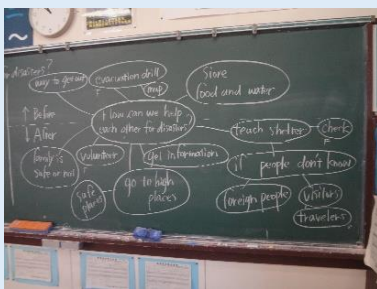 or disasters?
way to get out
evacuation drill
map
Store
food and water
↑ Before
↓ After
How can we help
each other for disasters?
teach shelter
check
family is
safe or not
volunteer
get information
if people don't know
safe
places
go to high
places
foreign people
visitors
travelers